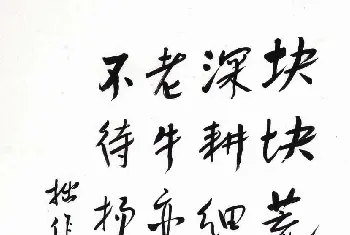 块块荒
深耕细
老牛亦
不待扬
拙作